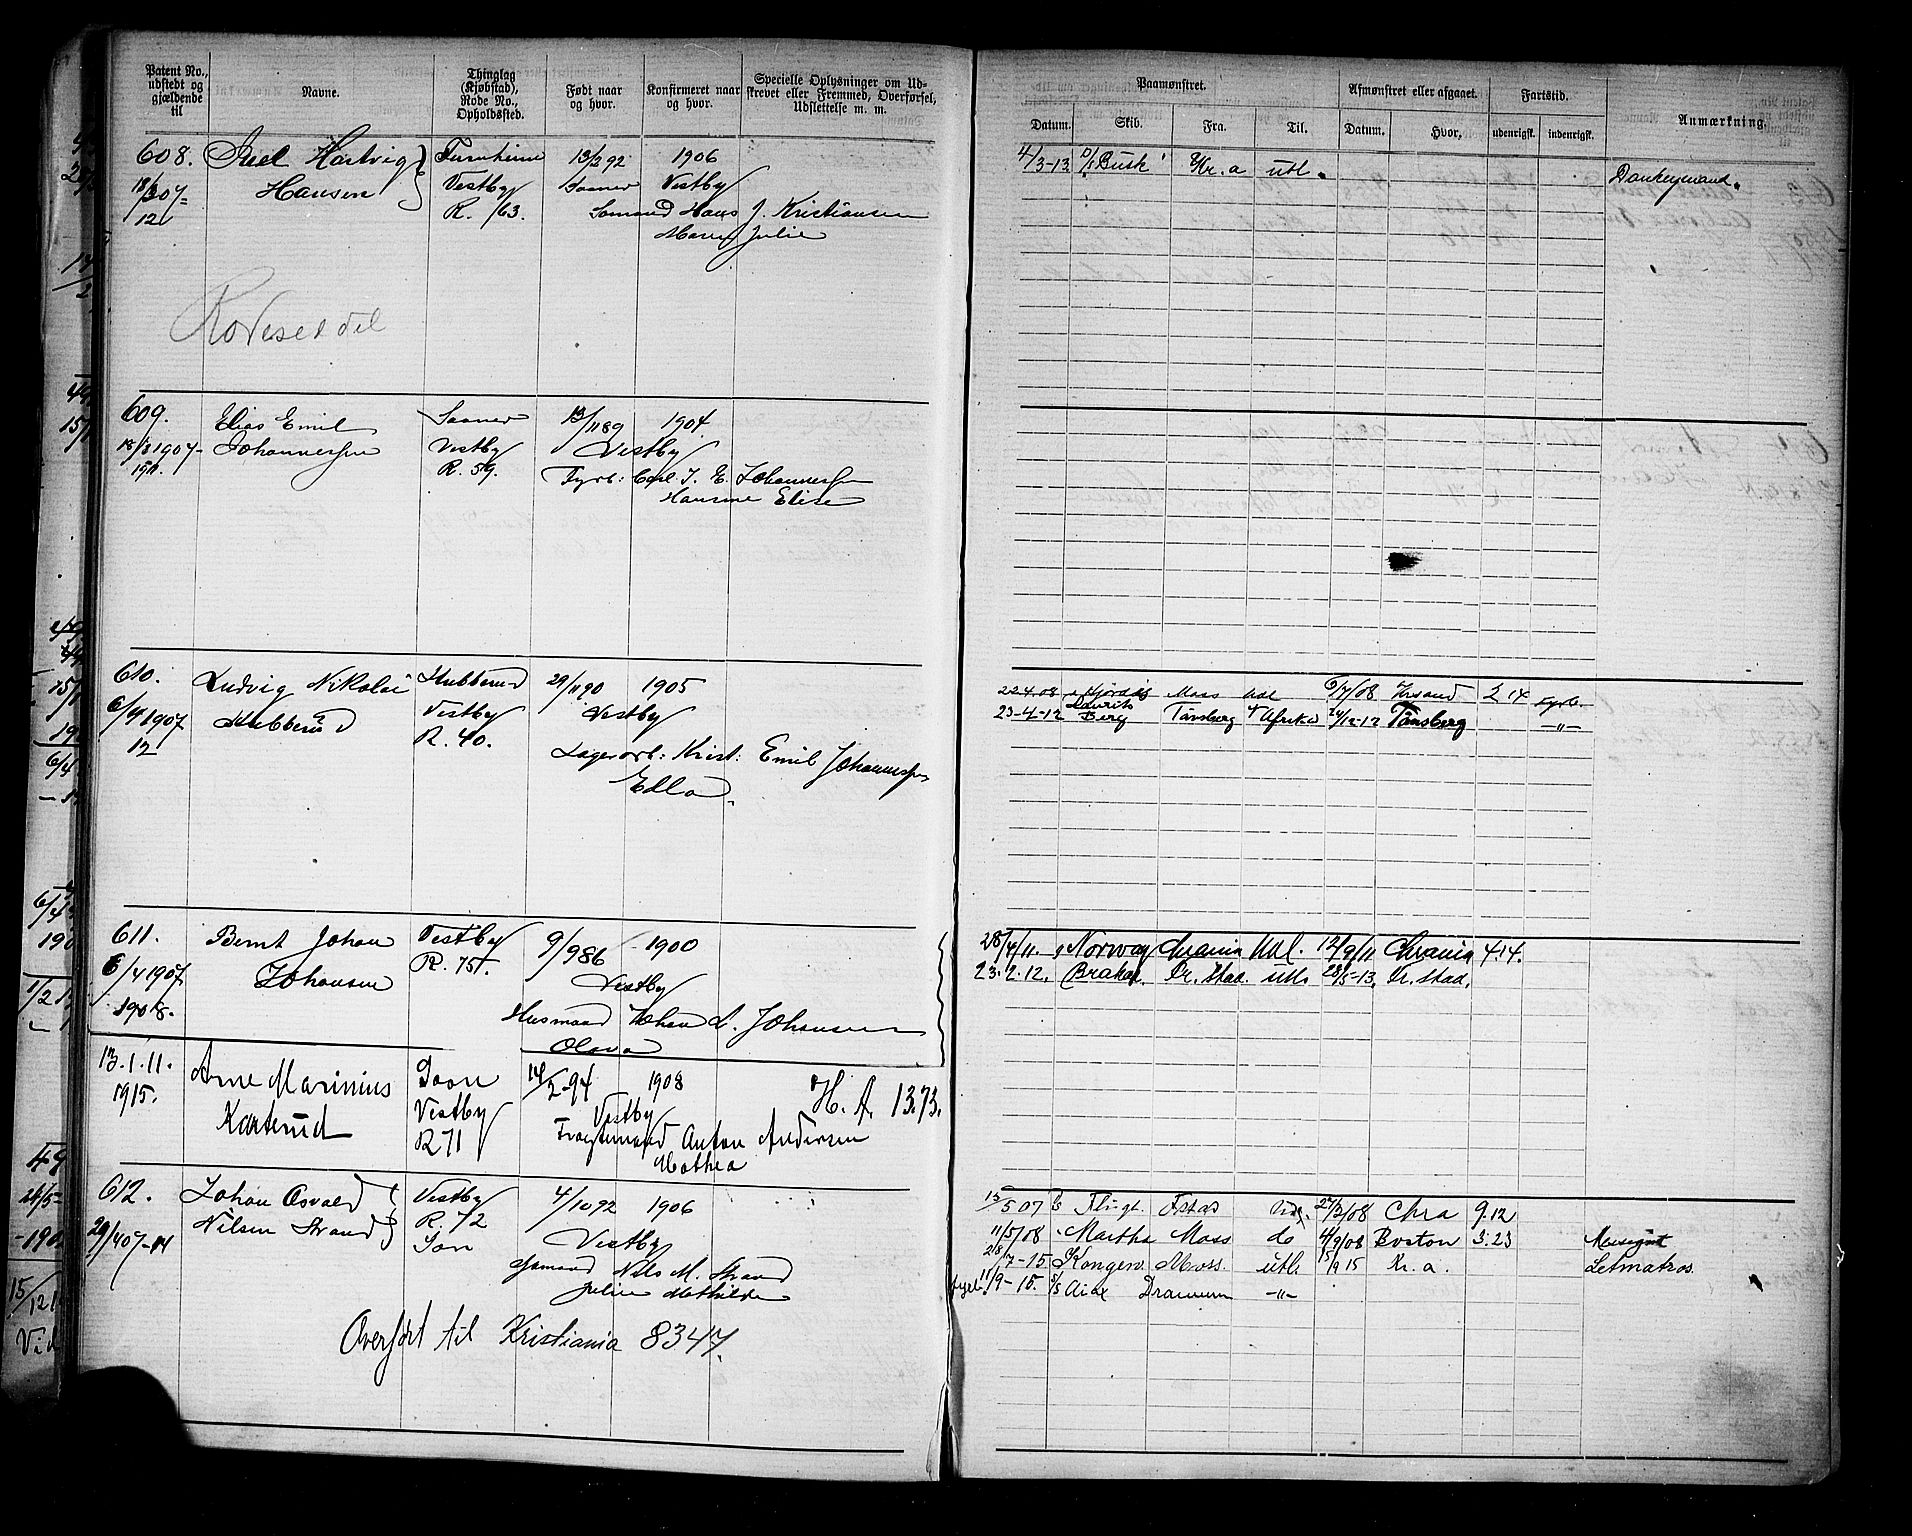 Patent No., udstedt og gjældende til
Navne.
Thinglag (Kjøbstad), Rode No., Opholdssted.
Født naar og hvor.
Konfirmeret naar og hvor.
Specielle Oplysninger om Udskrevet eller Fremmed, Overførsel, Udslettelse m. m.
Paamønstret.
Datum.
Skib.
Fra.
Til.
Afmønstret eller afgaaet.
Datum.
Hvor,
Fartstid.
udenrigsk.
indenrigsk.
Anmærkning.
608. Juel Hartvig
Hansen
12
Vestby
R. 163.
13/2 92
1906
Vestby
Hans J. Kristiansen
Maren Julie
4/3-13 Busk Kr.a utl. Donkeymand.
609. Elias Emil
Johannessen
18/3 1907-
Vestby
R. 59.
13/11 89 1904
Vestby
Fyrb: Carl J. E. Johannessen
Hansine Elise
610. Ludvig Nikolai
Hubberud
6/4 1907
12
Hubberud
Vestby
R. 40.
29/11 90 1905
Vestby
Lagerarb: Krist: Emil Johannessen
Edla
22.4.08 Hjørdis Moss Udl 6/7/08 Krsand 2 14
23-4-12 Laurits Berg Tønsberg Afrika 24/12-12 Tønsberg -"-
611. Bernt Johan
Johansen
6/4 1907
1908.
Vestby
R. 75.
9/9 86 1900
Vestby
Husmand Johan L. Johansen
Olava
28/4/11. Norway Chrania Udl. 12/9/11 Chrania 4 14.
23.2.12. Brakar. Fr.stad. utl. 28/5-13. Fr.stad.
13.1.11.
1915.
Arne Marinius
Karterud
Soon
Vestby
R 71
14/2-94 1908
Vestby
Anton Andersen
Mathea
H. A. 1373.
612. Johan Osvald
Nilsen Strand
29/4 07-14
Vestby
R. 72
Son
4/10 92 1906
Vestby
Nils M. Strand
Julie Mathilde
Overført til Kristiania 8347.
15/5 07 Flugt. Fstad Udl. 27/2/08 Chra 9.12
11/5/08 Martha Moss do 4/9/08 Boston 3.23
28/7-15 Moss utl. 15/9 15 Kr.a. Letmatros.
11/9-15. S/S Aiax Drammen -"-